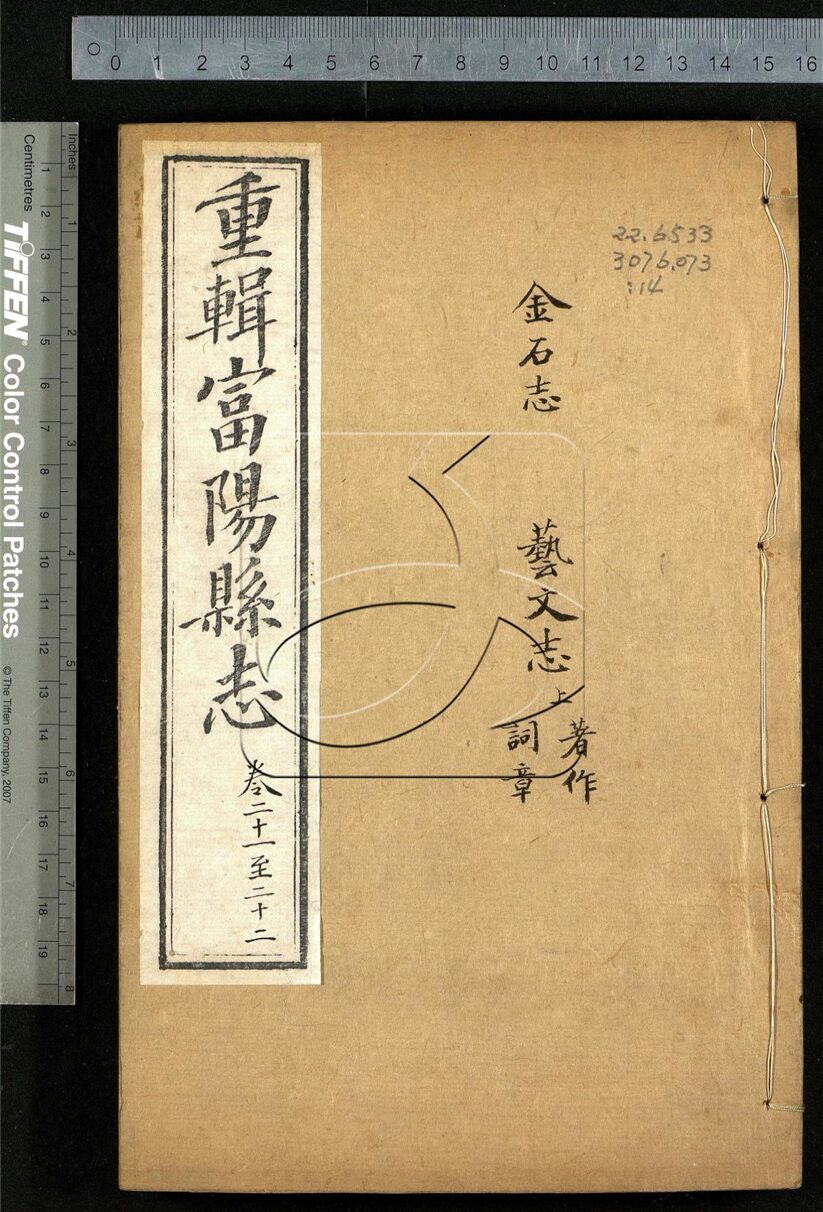 0 1 2 3 4 5 6 7 8 9 10 11 12 13 14 15 16
Inches
Centimetres
1 2 3 4 5 6 7 8
1 2 3 4 5 6 7 8 9 10 11 12 13 14 15 16 17 18 19
TIFFEN® Color Control Patches
© The Tiffen Company, 2007
22.6533
3076.073
:14
金石志
藝文志上
著作
詞章
重輯富陽縣志
卷二十一至二十二